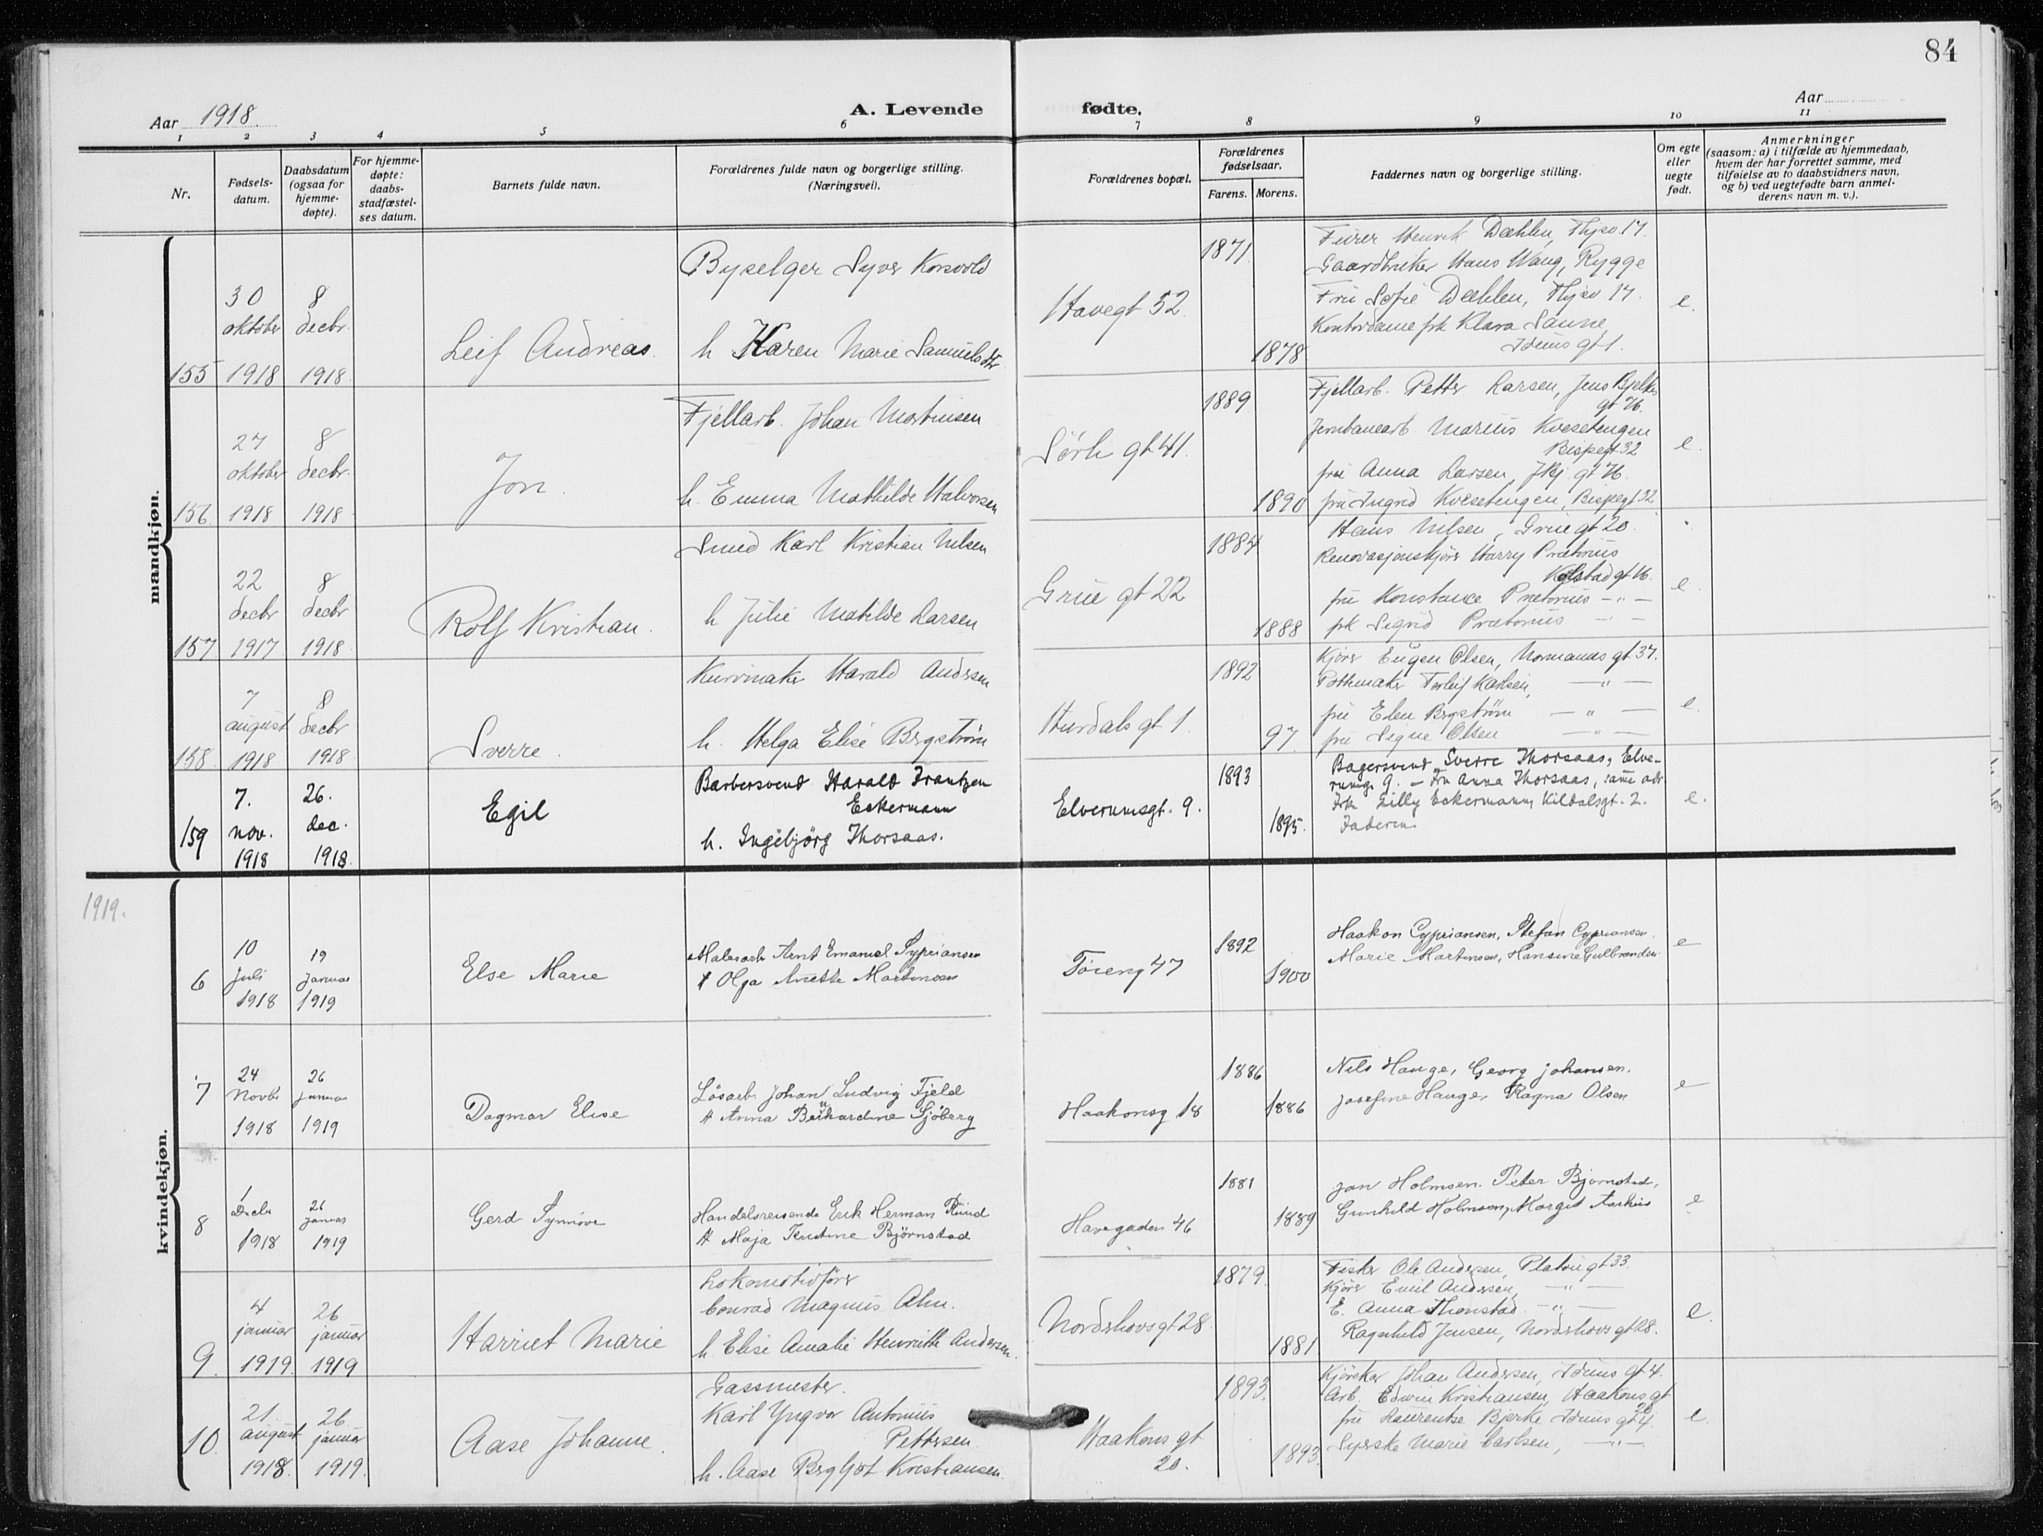 84
Aar 1918.
A. Levende fødte.
Aar
1 2 3 4 5 6 7 8 9 10 11
Nr.
Fødsels-
datum.
Daabsdatum
(ogsaa for
hjemme-
døpte).
For hjemme-
døpte:
daabs-
stadfæstel-
ses datum.
Barnets fulde navn.
Forældrenes fulde navn og borgerlige stilling.
(Næringsvei).
Forældrenes bopæl.
Forældrenes
fødselsaar.
Farens. Morens.
Faddernes navn og borgerlige stilling.
Om egte
eller
uegte
født.
Anmerkninger
(saasom: a) i tilfælde av hjemmedaab,
hvem der har forrettet samme, med
tilføielse av to daabsvidners navn,
og b) ved uegtefødte barn anmel-
derens navn m. v.).
mandkjøn.
155
30
oktober
1918
8
decbr.
1918.
Leif Andreas.
Byselger Syver Korsvold
h Karen Marie Samuelsdtr
Havegt 52
1871.
1878
Henrik Dæhlen, Thjsv 17.
Gaardbruker Hans Wang, Rygge
Fru Sofie Dæhlen, Thjsv 17.
Kontordame frk Klara Sanne,
Iduns gt 1.
e.
156
27
oktober
1918
8
decbr.
1918
Jon.
Fjellarb. Johan Martinsen
h. Emma Mathilde Halvorsen
Sørli gt 41.
1889
1890
Fjellarb. Petter Larsen, Jens Bjelkes
gt 76.
Jernbanearb Marius Kvesetengen
Bispegt 32
fru Anna Larsen, Jbj. gt 76.
fru Ingrid Kvesetengen, Bispegt 32.
e.
157
22
decbr
1917
8
decbr
1918
Rolf Kristian.
Smed Karl Kristian Nilsen
h Julie Matilde Larsen
Grue gt 22
1884
1888
Hans Nilsen, Grue gt 20.
Renovasjonskjører Harry Prætorius
Kolstad gt 16.
fru Konstance Prætorius — " —
frk Sigrid Prætorius — " —
e.
158.
7
august
1918
8
decbr
1918
Sverre.
Kurvmaker Harald Andersen
h. Helga Elise Bergstrøm
Hurdals gt 1.
1892
97.
Kjører Eugen Olsen, Normanns gt 37.
Pottemaker Torleif Karlsen, — " —
fru Elen Bergstrøm — " —
fru Signe Olsen — " —
e.
159
7.
nov.
1918
26.
dec.
1918.
Egil
Barbersvend Harald Frantzen
Eckermann
h. Ingebjørg Thorsaas.
Elverumsgt. 9.
1893
1895.
Bagersvend Sverre Thorsaas, Elve-
rumsg. 9. — Fru Anna Thorsaas, samme adr
Frk Lilly Eckermann, Kildalsgt. 2.
Faderen.
e.
1919.
kvindekjøn.
6
10
Juli
1918
19
Januar
1919
Else Marie
Malerarb Arnt Emanuel Syprianson
H Olga Anette Martinsen
Tøieng 47
1892
1900
Haakon Cypriansen, Stefan Cypriansen.
Marie Martinsen, Hansine Gulbrandsen
e
7
24
Novbr
1918
26
januar
1919
Dagmar Elise
Løsarb. Johan Ludvig Fjeld
H Anna Bernhardine Sjøberg
Haakonsg 18
1886
1886
Nils Hauge, Georg Johansen.
Josefine Hauge, Ragna Olsen
e
8
1
Decbr
1918
26
januar
1919
Gerd Synnøve
Handelsreisende Erik Herman Riund
H Maja Kristine Bjørnstad
Havegaden 46
1881
1889
Jon Holmsen. Peter Bjørnstad,
Gunhild Holmsen, Margit Aarhus
e
9.
4
januar
1919.
26
januar
1919
Harriet Marie
Lokomotivfører
Conrad Magnus Alm.
h Elise Amalie Henriette Andersen.
Nordshovsgt 28
1879.
1881
Fisker Ole Andersen, Platougt 33.
Kjører Emil Andersen, — " —
E. Anna Thonstad — " —
Ragnhild Jensen, Nordshovsgt 28.
e.
10.
21.
august
1918.
26.
januar
1919.
Aase Johanne.
Gassmester.
Karl Yngvar Antonius
Pettersen.
h. Aase Bergljot Kristiansen.
Haakons gt
20.
1893.
1893.
Kjørekar Johan Andersen, Iduns gt 4.
Arb. Edwin Kristiansen, Haakons gt
20
fru Laurentze Bjerke Iduns gt 4.
Syerske Marie Carlsen, — " —
e.